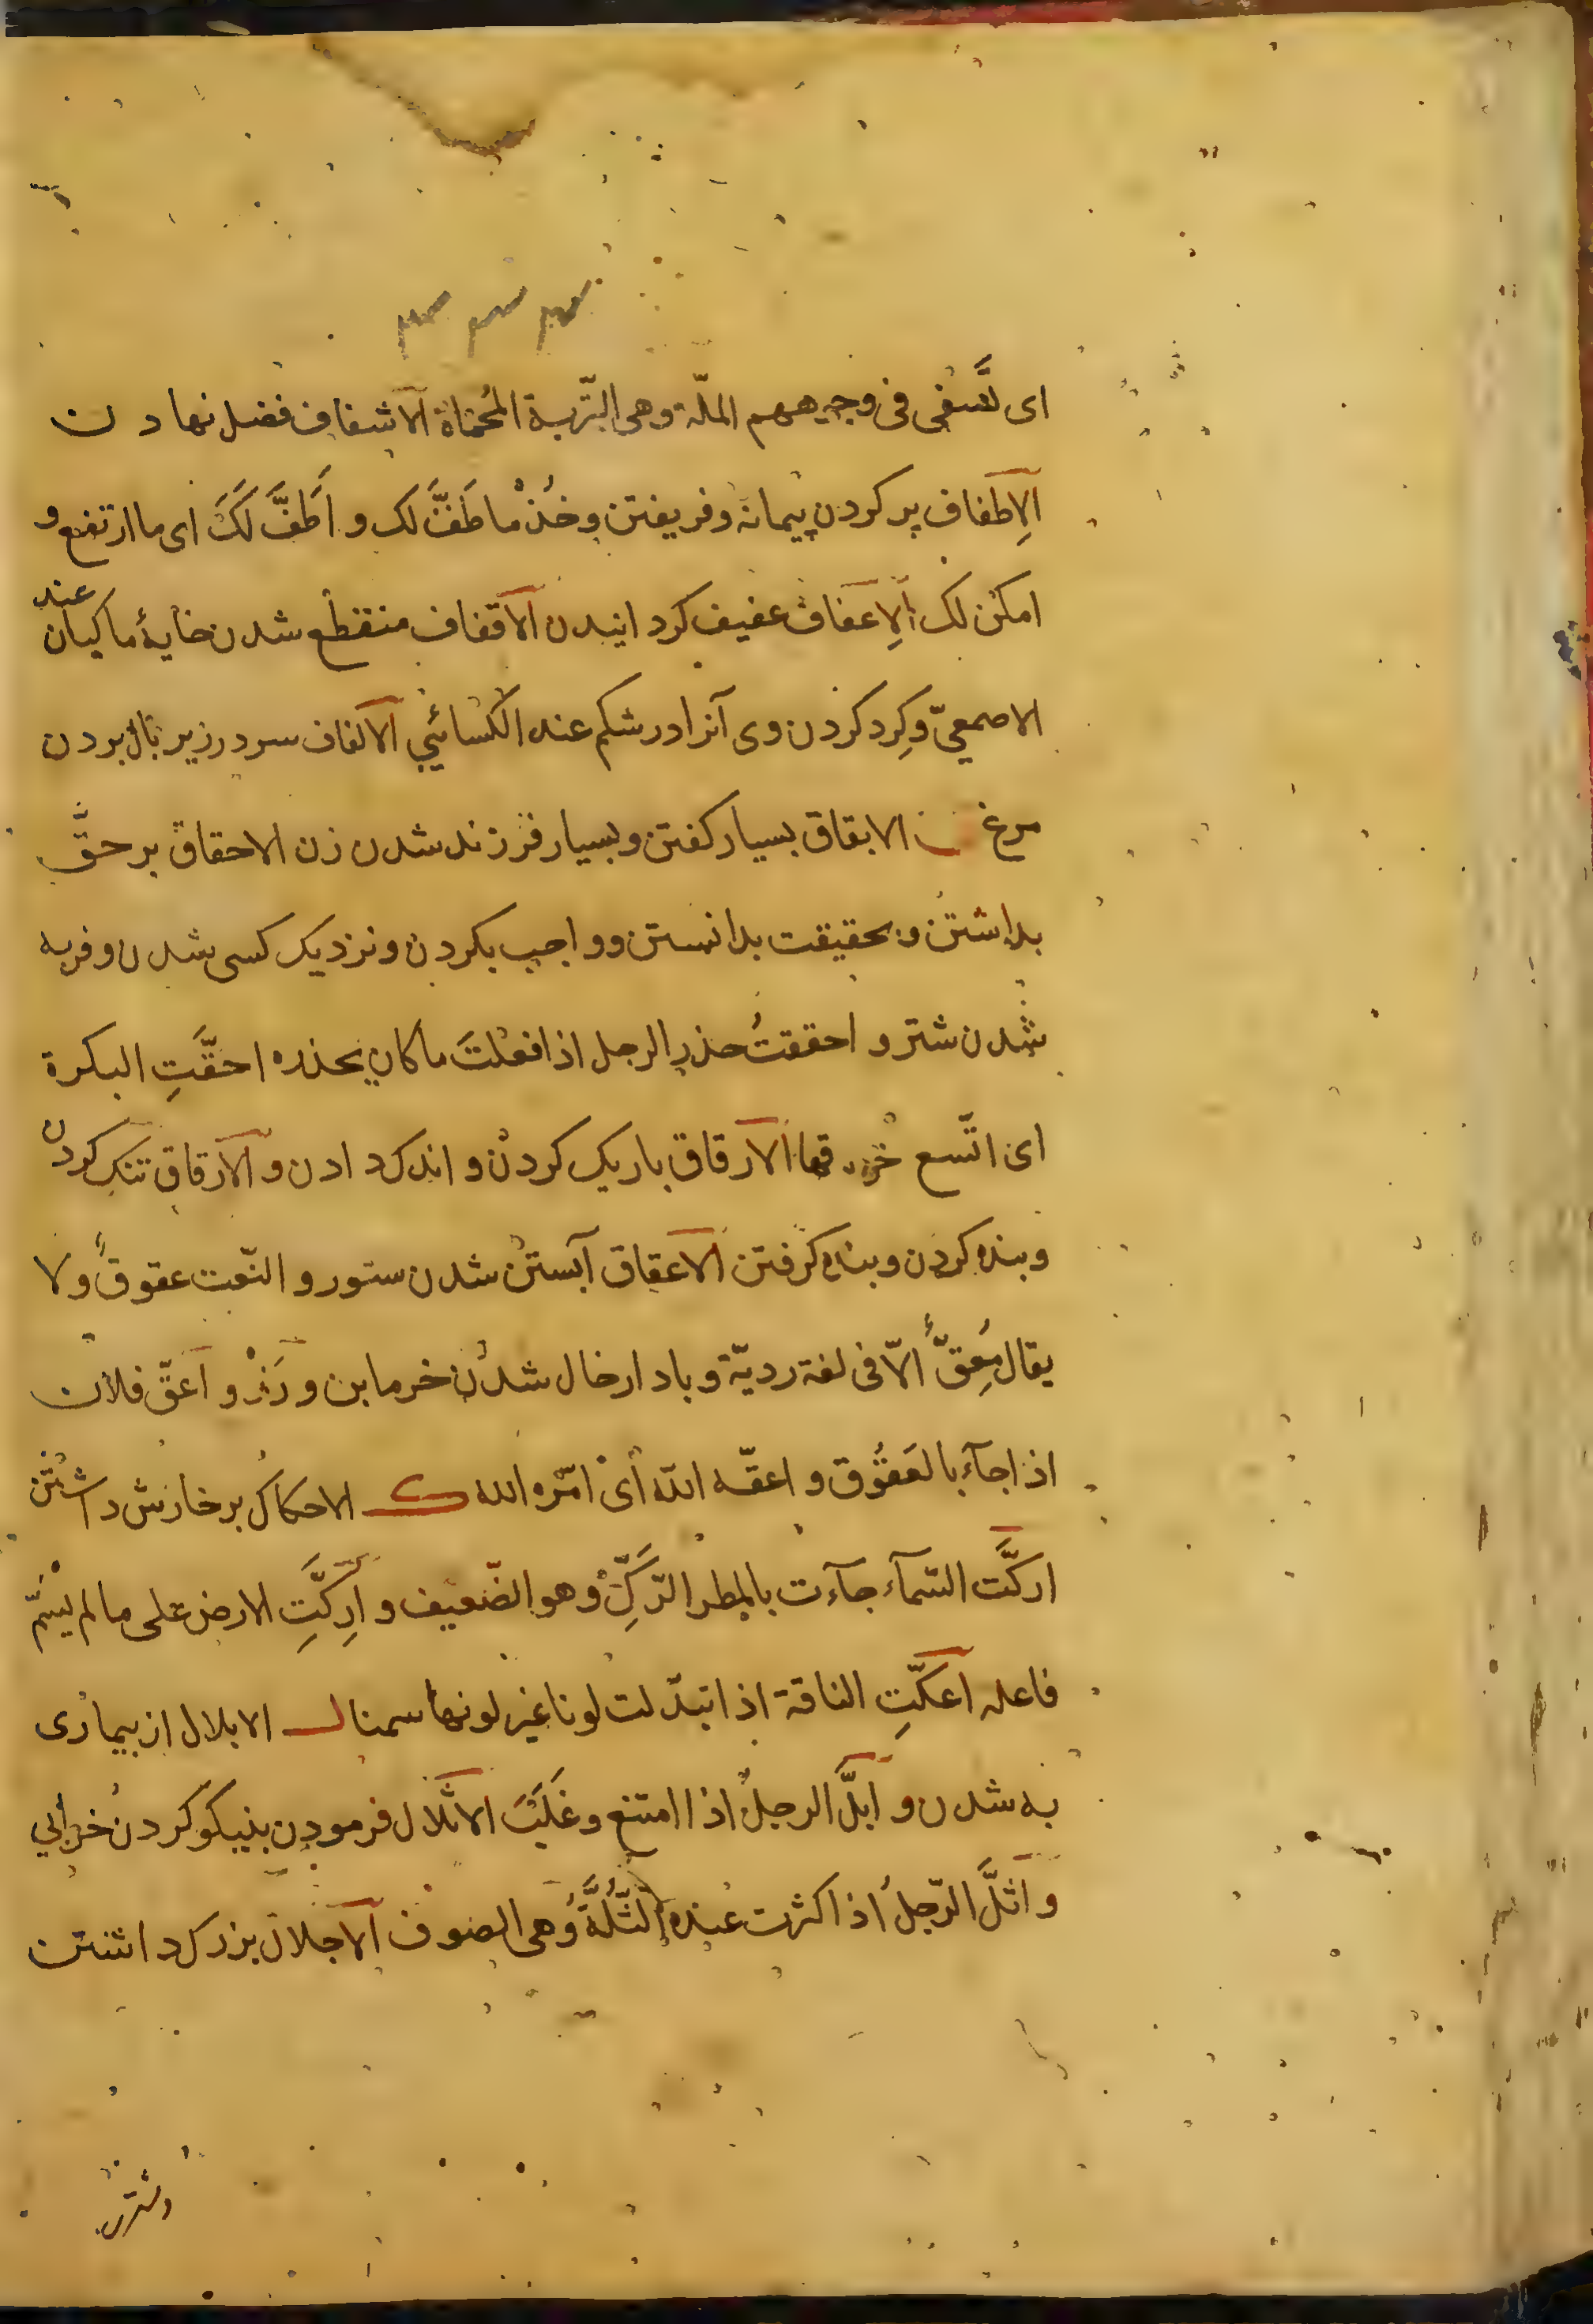 ای تَسْفی فی وجوههم الملّة وهی التّربة المُحْماة الاشفاف فضل نهادن
الاِطفاف پر کردن پیمانه وفریفتن وخُذْ ما طَفَّ لک و اَطَفَّ لَکَ ای ما ارتفع و
امکن لک الاِعفاف عفیف کردانیدن الاقفاف منقطع شدن خایهٔ ماکیان عند
الاصمعیّ وکِرد کردن وی آنرا در شکم عند الکسائیّ الالفاف سر در زیر بال بردن
مرغ الابقاق بسیار کفتن وبسیار فرزند شدن زن الاحقاق بر حقّ
بداشتن وبحقیقت بدانستن وواجب بکردن ونزدیک کسی شدن وفربه
شدن شتر و احققتُ حذر الرجل اذا فعلتَ ما کان یحذره احقَّتِ البکرة
ای اتّسع خرقها الارقاق باریک کردن و اندک دادن و الارقاق تنک کردن
وبنده کردن وبنده کرفتن الاعقاق آبستن شدن ستور و النّعت عقوقٌ ولا
یقال مُعِقٌّ الّا فی لغة ردیّة وباد ارخال شدن خرمابن و رَزْ و اعقّ فلان
اذا جآء بالعَقوُق و اعقّه اللّه ای امّره اللّه ک الاحکاک بر خارش داشتن
ارکَّت السّمآء جآءت بالمطر الرَّکِّ وهو الضّعیف و اُرِکَّتِ الارض علی ما لم یُسَمّ
فاعله اعکّتِ الناقة اذا تبدّلت لونا غیر لونها سمنا ل الابلال از بیماری
به شدن و ابلَّ الرجلُ اذا امتنع وغَلَبَ الاثلال فرمودن بنیکو کردن خرابی
و اثلَّ الرّجلُ اذا کثرت عنده الثَّلَّةُ وهی الصوف الاجلال بزرک داشتن